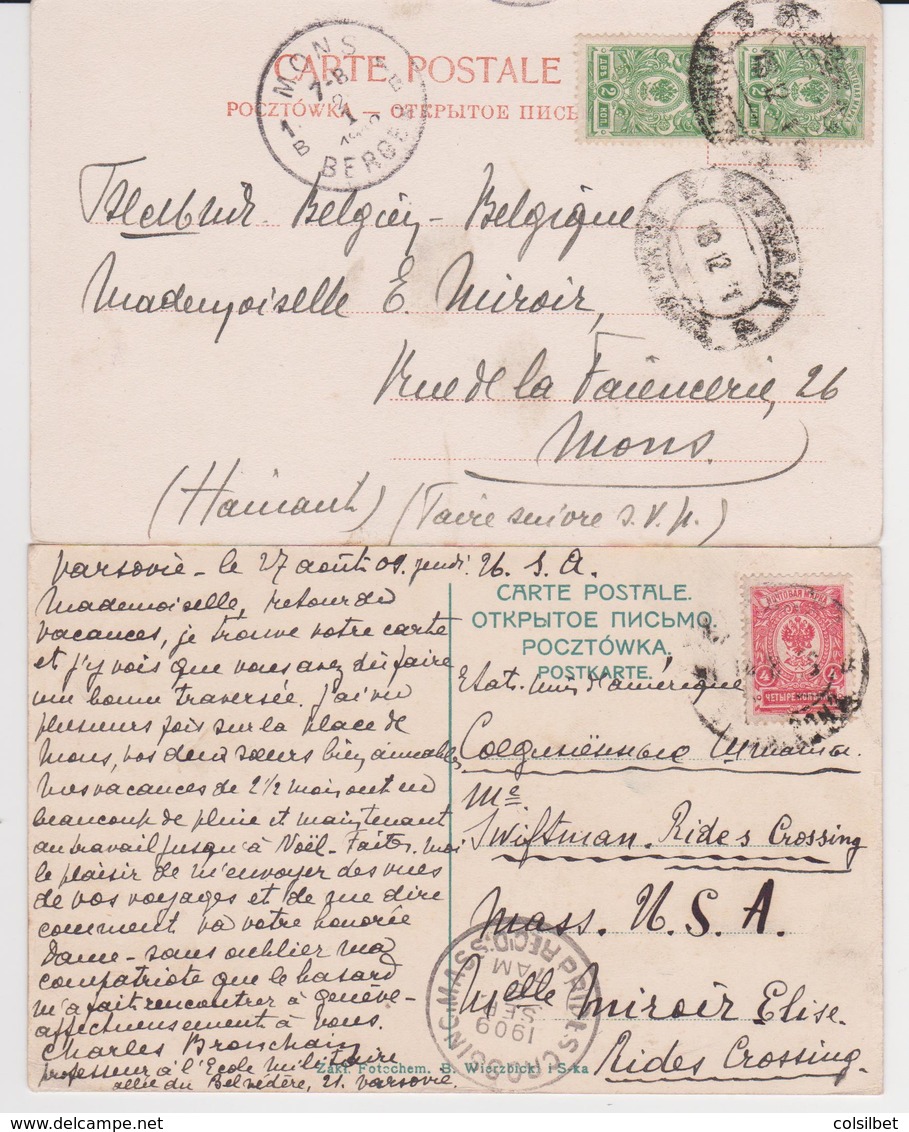 CARTE POSTALE
POCZTÓWKA — ОТКРЫТОЕ ПИСЬ
MONS
7-8
1
BERGEN
2 КОП
2
18 12
Belgien - Belgique
Mademoiselle E. Miroir,
Rue de la Faiencerie, 26
Mons.
(Hainaut) (Faire suivre s.v.p.)
Varsovie - le 27 août 09. jeudi.
Mademoiselle, retour de
vacances, je trouve votre carte
et j'y vois que vous avez dû faire
une bonne traversée. J'ai vu
plusieurs fois sur la place de
Mons, vos deux sœurs bien aimables,
Mes vacances de 2 1/2 mois ont eu
beaucoup de pluie et maintenant
au travail jusqu'à Noël - Faites-moi
le plaisir de m'envoyer des vues
de vos voyages et de me dire
comment va votre honorée
Dame - sans oublier ma
compatriote que le hasard
m'a fait rencontrer à genève -
affectueusement à vous.
Charles
professeur à l'Ecole militaire
allée du Belvédère, 21. Varsovie.
U. S. A.
CARTE POSTALE.
ОТКРЫТОЕ ПИСЬМО.
POCZTÓWKA.
POSTKARTE.
ПОЧТОВАЯ МАРКА
4
Etats-Unis d'amérique
Соединённые Штаты.
Swiftman. Rides Crossing
Mass. U. S. A.
Melle Miroir Elise.
Rides Crossing.
PRIDES CROSSING, MASS.
REC'D.
AM
SEP
1909
Zakł. Fotochem. B. Wierzbicki i S-ka
colsilbet